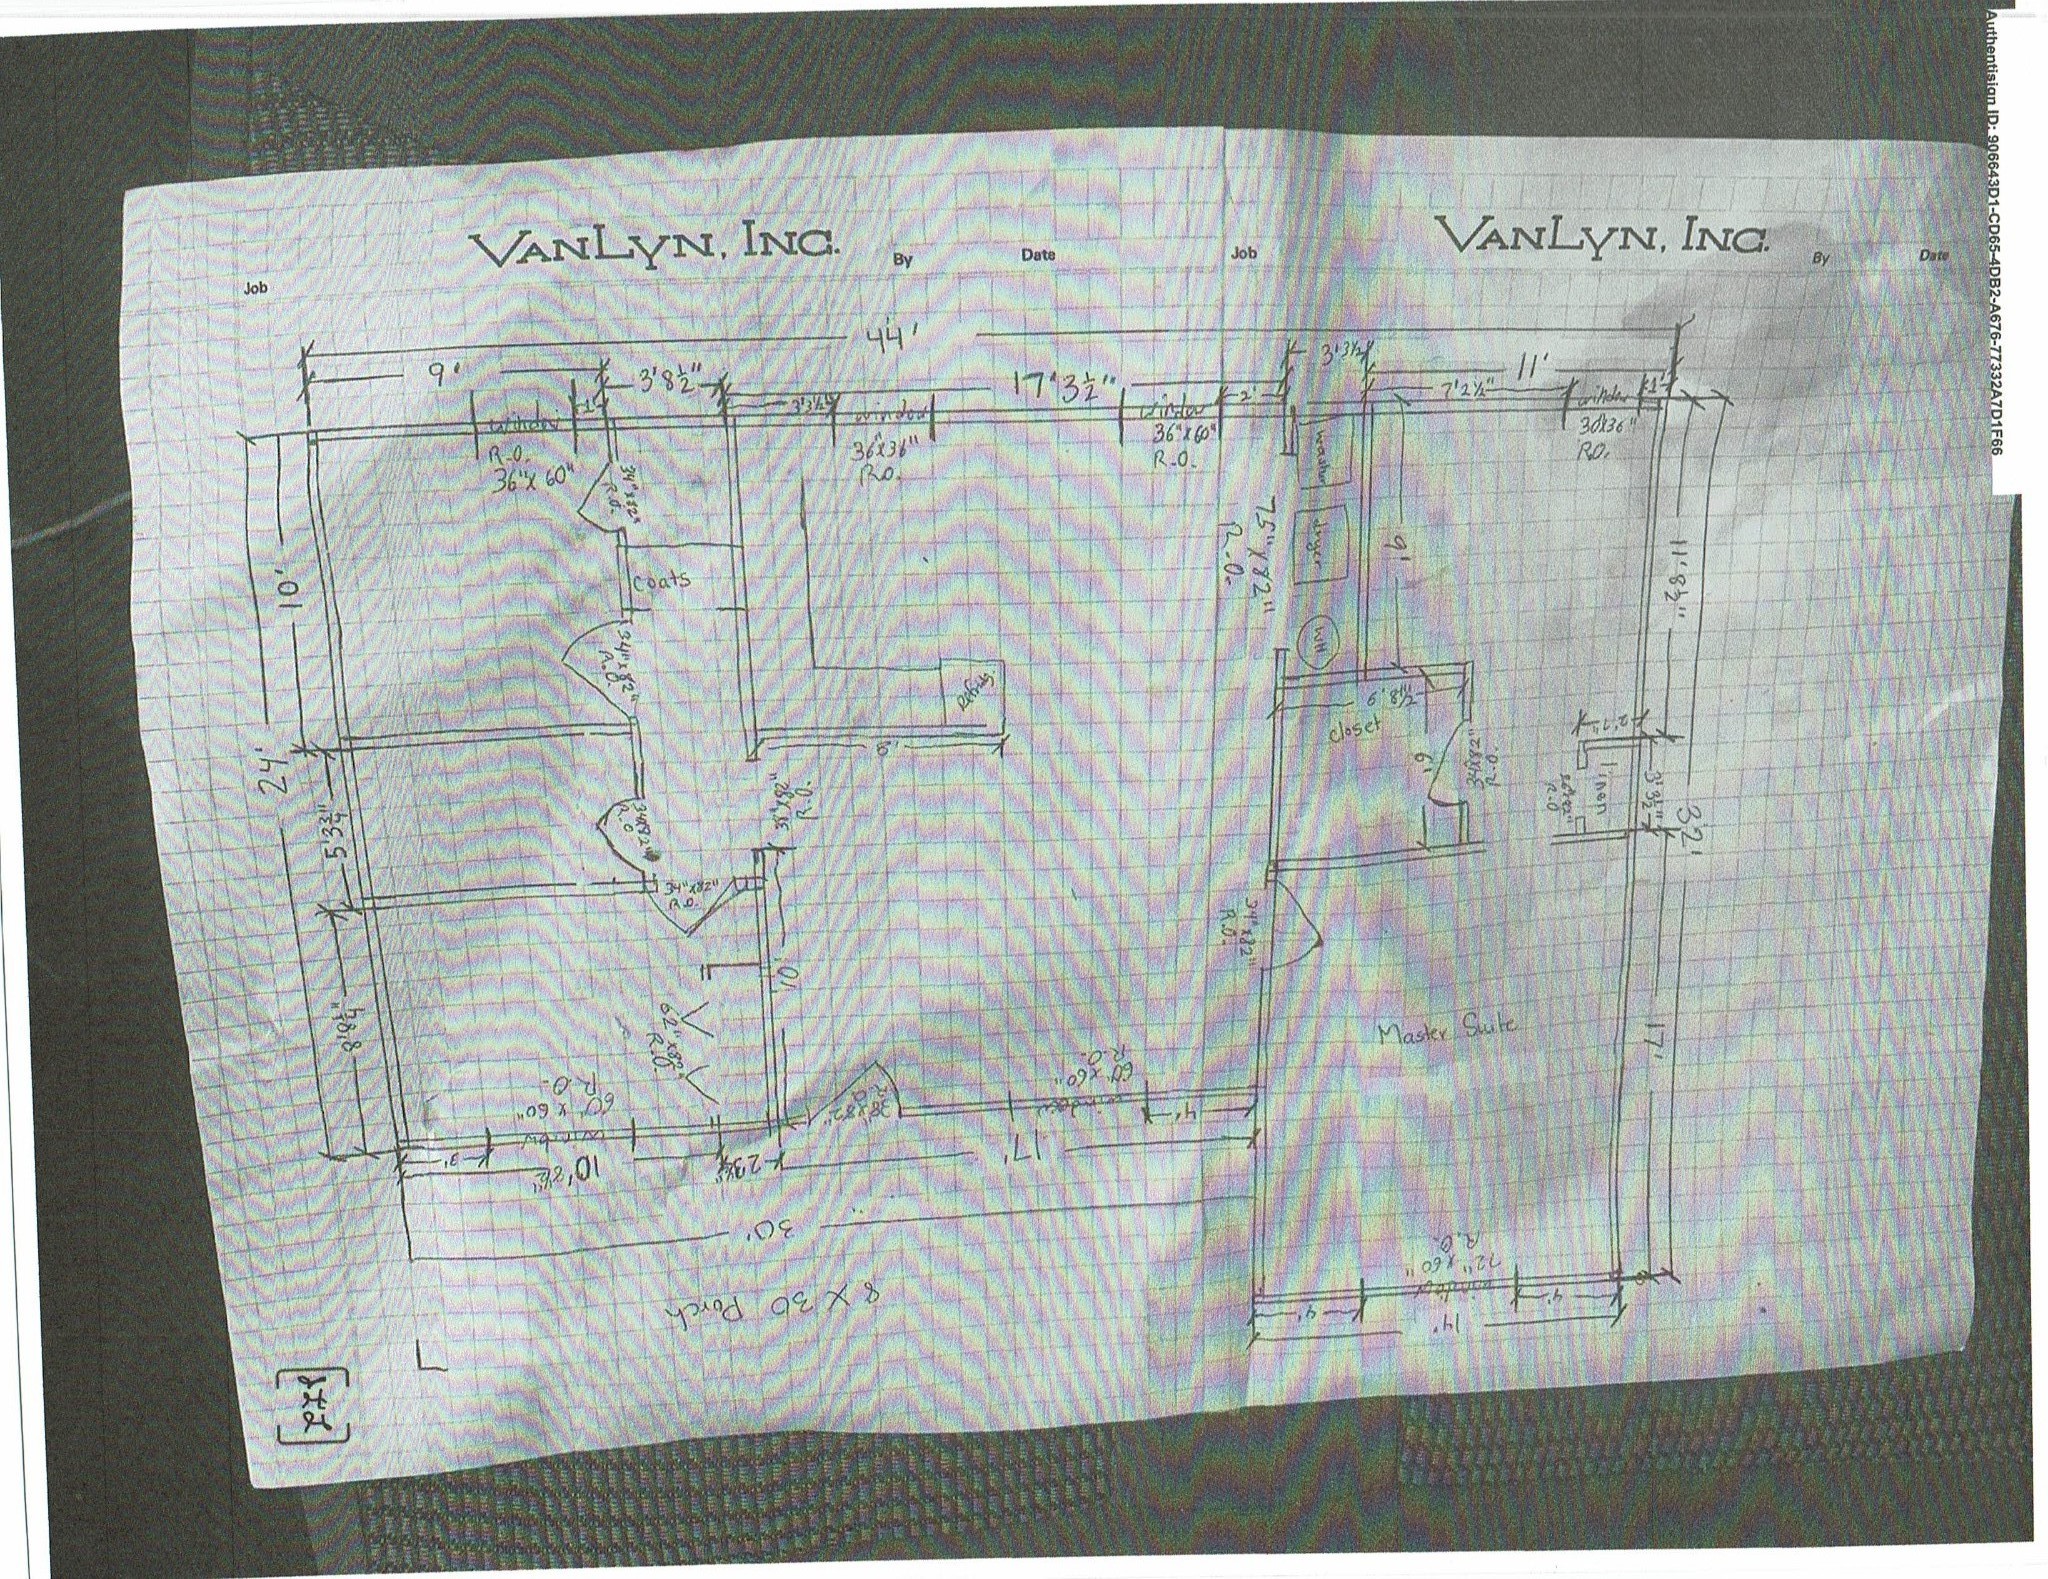 Authentisign ID: 9066D43D1-CD65-4DB2-A676-77332A7D1F66
VANLYN, INC.
VANLYN, INC.
Job
By
Date
Job
By
Date
44'
9'
3'8½"
17'3½"
3'3½
11'
1'
3'3½"
2'
7'2½"
1'
window
R.O.
36"x60"
window
36"x36"
R.O.
window
36"x60"
R.O.
window
30x36"
R.O.
34"x82"
R.O.
coats
34"x82"
R.O.
washer
dryer
WH
75"x82"
R.O.
9'
11'8½"
10'
24'
Refrig
6'
6'8½
closet
6'
34x82"
R.O.
2'1"
linen
R.O.
3'3½"
32'
38"x82"
R.O.
5'3¾"
34x82"
R.O
34"x82"
R.O.
34"x82"
R.O.
10'
62"x82"
R.O.
8'8¼"
Master Suite
17'
60"x60"
R.O.
window
38"x82"
R.O.
60"x60"
R.O.
window
4'
3'
10'8½"
2'3¾"
17'
30'
8 X 30 Porch
72"x60"
R.O.
window
4'
4'
14'